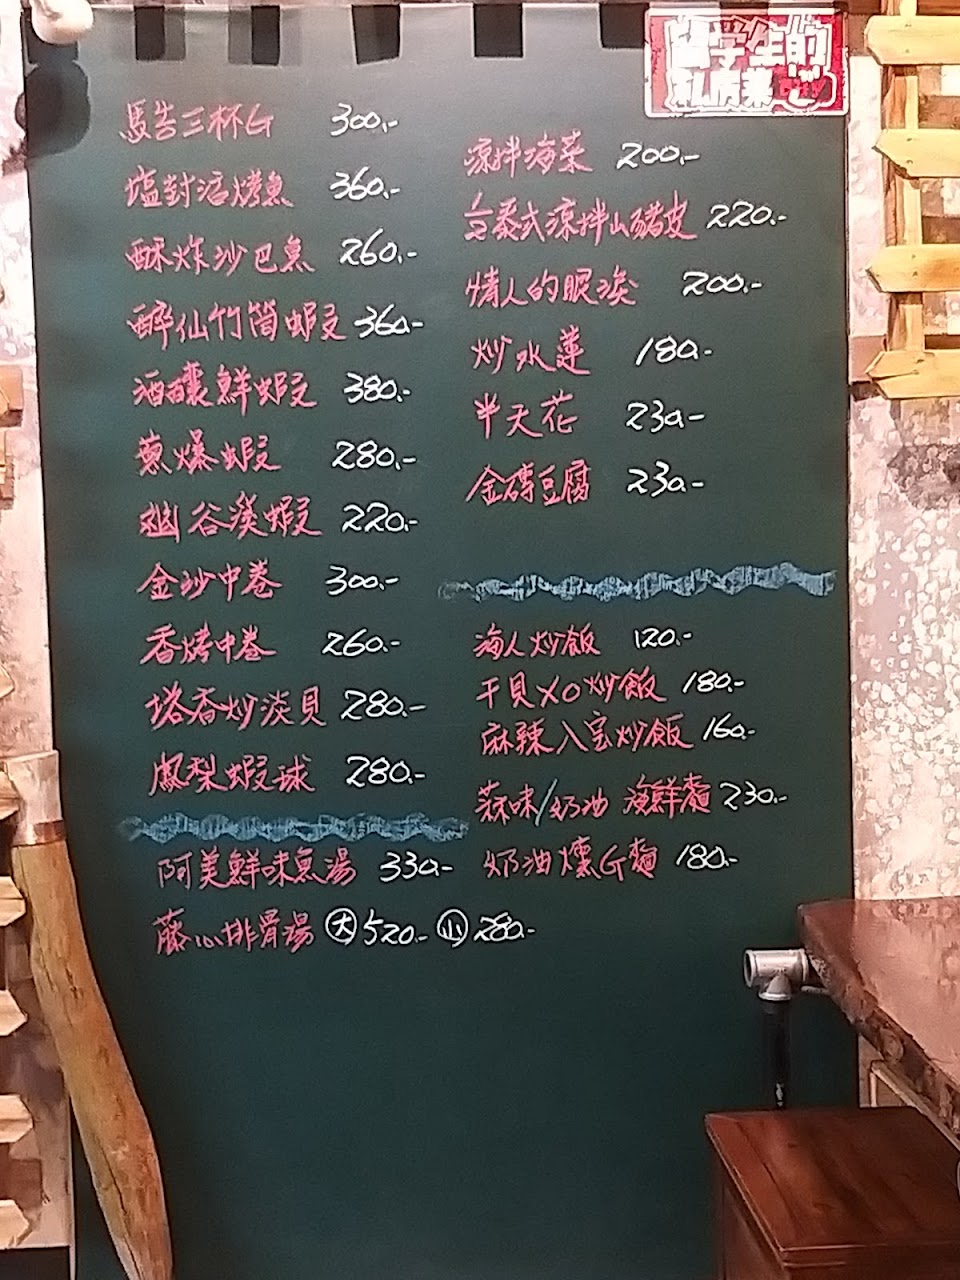 留学生的
私房菜
馬告三杯G 300.-
塩對活烤魚 360.-
酥炸沙巴魚 260.-
醉仙竹筒蝦 360.-
酒釀鮮蝦 380.-
蔥爆蝦 280.-
幽谷溪蝦 220.-
金沙中卷 300.-
香烤中卷 260.-
塔香炒淡貝 280.-
鳳梨蝦球 280.-
阿美鮮味魚湯 330.-
藤心排骨湯 大 520.- 小 280.-
涼拌海菜 200.-
台泰式涼拌山豬皮 220.-
情人的眼淚 200.-
炒水蓮 180.-
半天花 230.-
金磚豆腐 230.-
海人炒飯 120.-
干貝XO炒飯 180.-
麻辣八宝炒飯 160.-
蒜味/奶油 海鮮麵 230.-
奶油燻G麵 180.-